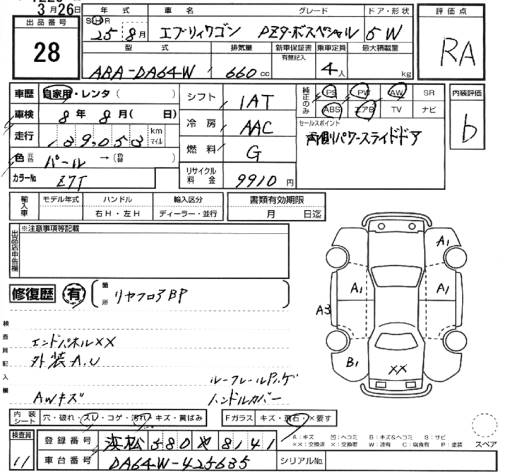 3月26日
出品番号 28
年式 車名 グレード ドア・形状 評価点
25年8月 エブリィワゴン PZターボスペシャル 5W RA
型式 排気量 新車保証書 乗車定員 最大積載量
有無記入
ABA-DA64W 660cc 4人 kg
車歴 自家用・レンタ( ) シフト IAT 純正のみ PS PW AW SR 内装評価
車検 8年8月( 日) ABS エアB TV ナビ b
冷房 AAC セールスポイント
走行 139,053 km マイル 両側パワースライドドア
燃料 G
色 元色 パール→(色替 )
カラーNo Z7T リサイクル料金 9910円
輸入車 モデル年式 ハンドル 輸入区分 書類有効期限
右H・左H ディーラー・並行 月 日迄
出品店申告欄 ※注意事項等記載
修復歴 有 箇所 リヤフロアBP
A1 A1
A1 A1
A3
B1
XX
検査員記入欄
エンドパネルXX
外装A,U
ルーフレール
AWキズ ハンドルカバー
内装シート 穴・破れ・スレ・コゲ・汚れ・キズ・黄ばみ Fガラス キズ・飛石・X要す
A:キズ U:ヘコミ B:キズ&ヘコミ S:サビ
XX:交換済 X:要交換 W:波有 C:腐食有 P:塗装
スペア
検査員 11
登録番号 浜松 580 や 8141
車台番号 DA64W-425635 シリアルNo.